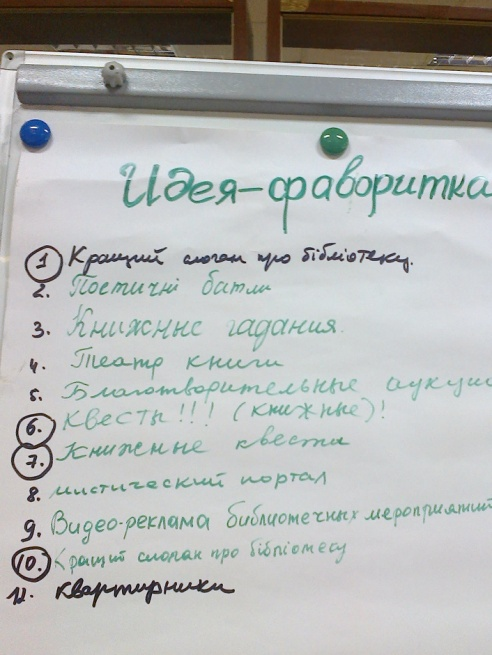 Идея-фаворитка
1 Кращий слоган про бібліотеку.
2. Поетичні батли
3. Книжные гадания.
4. Театр книги
5. Благотворительные аукцио
6. Квесты!!! (книжные)!
7. Книжные квесты
8. мистический портал
9. Видео-реклама библиотечных мероприятий
10. Кращий слоган про бібліотеку
11. Квартирники